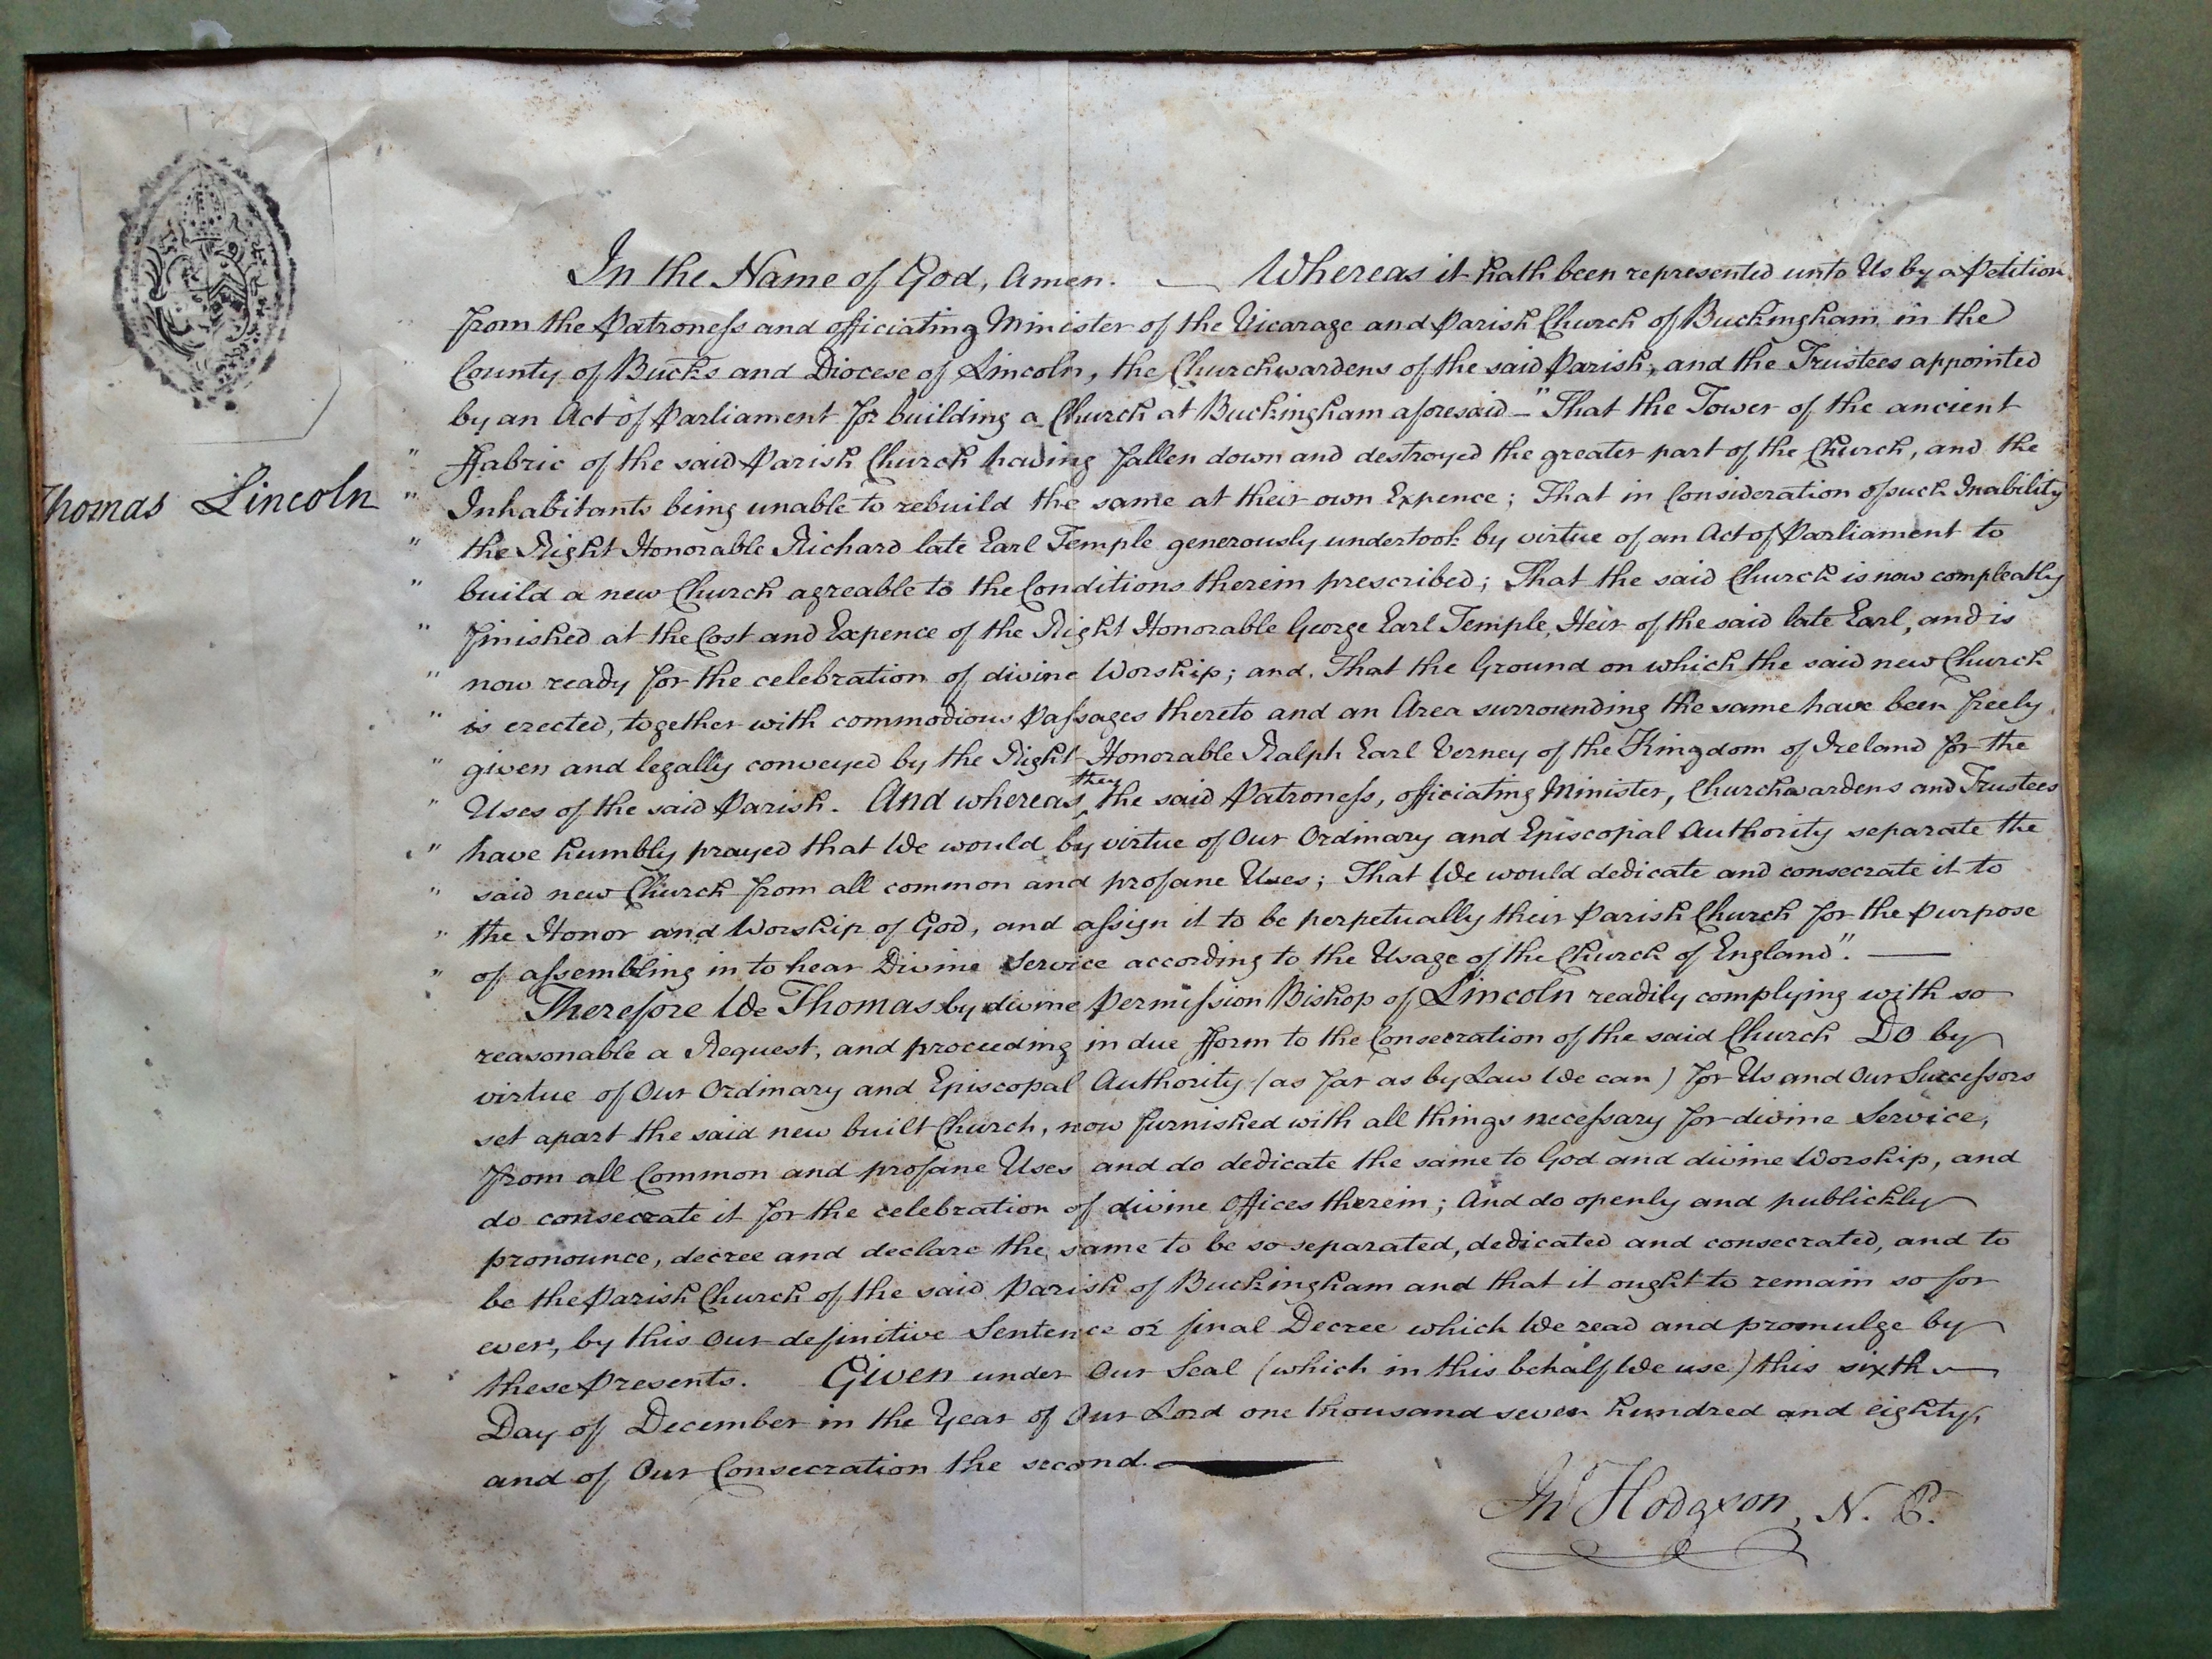 In the Name of God, Amen. — Whereas it hath been represented unto Us by a Petition
from the Patroness and officiating Minister of the Vicarage and Parish Church of Buckingham in the
County of Bucks and Diocese of Lincoln, the Churchwardens of the said Parish, and the Trustees appointed
by an Act of Parliament for building a Church at Buckingham aforesaid — "That the Tower of the ancient
" ffabric of the said Parish Church having fallen down and destroyed the greater part of the Church, and the
Thomas Lincoln
" Inhabitants being unable to rebuild the same at their own Expence; That in Consideration of such Inability
" the Right Honorable Richard late Earl Temple generously undertook by virtue of an Act of Parliament to
" build a new Church agreable to the Conditions therein prescribed; That the said Church is now compleatly
" finished at the Cost and Expence of the Right Honorable George Earl Temple, Heir of the said late Earl, and is
" now ready for the celebration of divine Worship; and, That the Ground on which the said new Church
" is erected, together with commodious Passages thereto and an Area surrounding the same have been freely
" given and legally conveyed by the Right Honorable Ralph Earl Verney of the Kingdom of Ireland for the
" Uses of the said Parish. And whereas they the said Patroness, officiating Minister, Churchwardens and Trustees
" have humbly prayed that We would by virtue of Our Ordinary and Episcopal Authority separate the
" said new Church from all common and profane Uses; That We would dedicate and consecrate it to
" the Honor and Worship of God, and assign it to be perpetually their Parish Church for the purpose
" of assembling in to hear Divine Service according to the Usage of the Church of England". —
Therefore We Thomas by divine Permission Bishop of Lincoln readily complying with so
reasonable a Request, and proceeding in due fform to the Consecration of the said Church Do by
virtue of Our Ordinary and Episcopal Authority (as far as by Law We can) for Us and Our Successors
set apart the said new built Church, now furnished with all things necessary for divine Service,
from all Common and profane Uses and do dedicate the same to God and divine Worship, and
do consecrate it for the celebration of divine Offices therein; And do openly and publickly
pronounce, decree and declare the same to be so separated, dedicated and consecrated, and to
be the Parish Church of the said Parish of Buckingham and that it ought to remain so for
ever, by this Our definitive Sentence or final Decree which We read and promulge by
these Presents. Given under Our Seal (which in this behalf We use) this sixth
Day of December in the Year of Our Lord one thousand seven hundred and eighty,
and of Our Consecration the second.
Jno Hodgson, N. P.